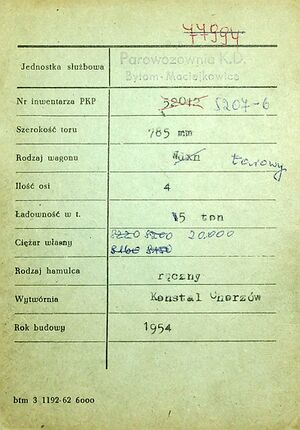 77994
Jednostka służbowa Parowozownia K.D.
Bytom-Maciejkowice
Nr inwentarza PKP 52012 5207-6
Szerokość toru 785 mm
Rodzaj wagonu Wdxn towarowy
Ilość osi 4
Ładowność w t. 15 ton
Ciężar własny 8220 8200 20.000
8160 8150
Rodzaj hamulca ręczny
Wytwórnia Konstal Chorzów
Rok budowy 1954
btm 3 1192-62 6000